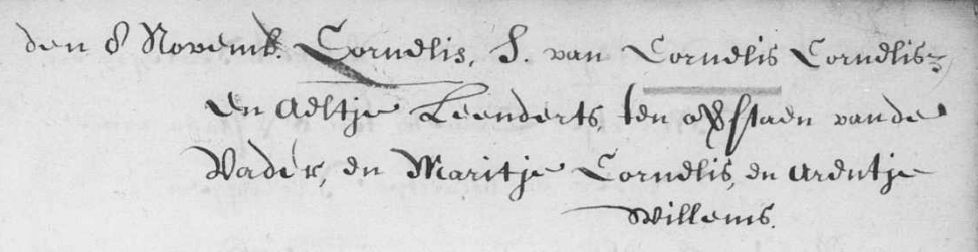 den 8 Novemb. Cornelis, S. van Cornelis Cornelisz,
en Aeltje Leenderts, ten opstaen vande
Vader, en Maritje Cornelis, en Arentje
Willems.